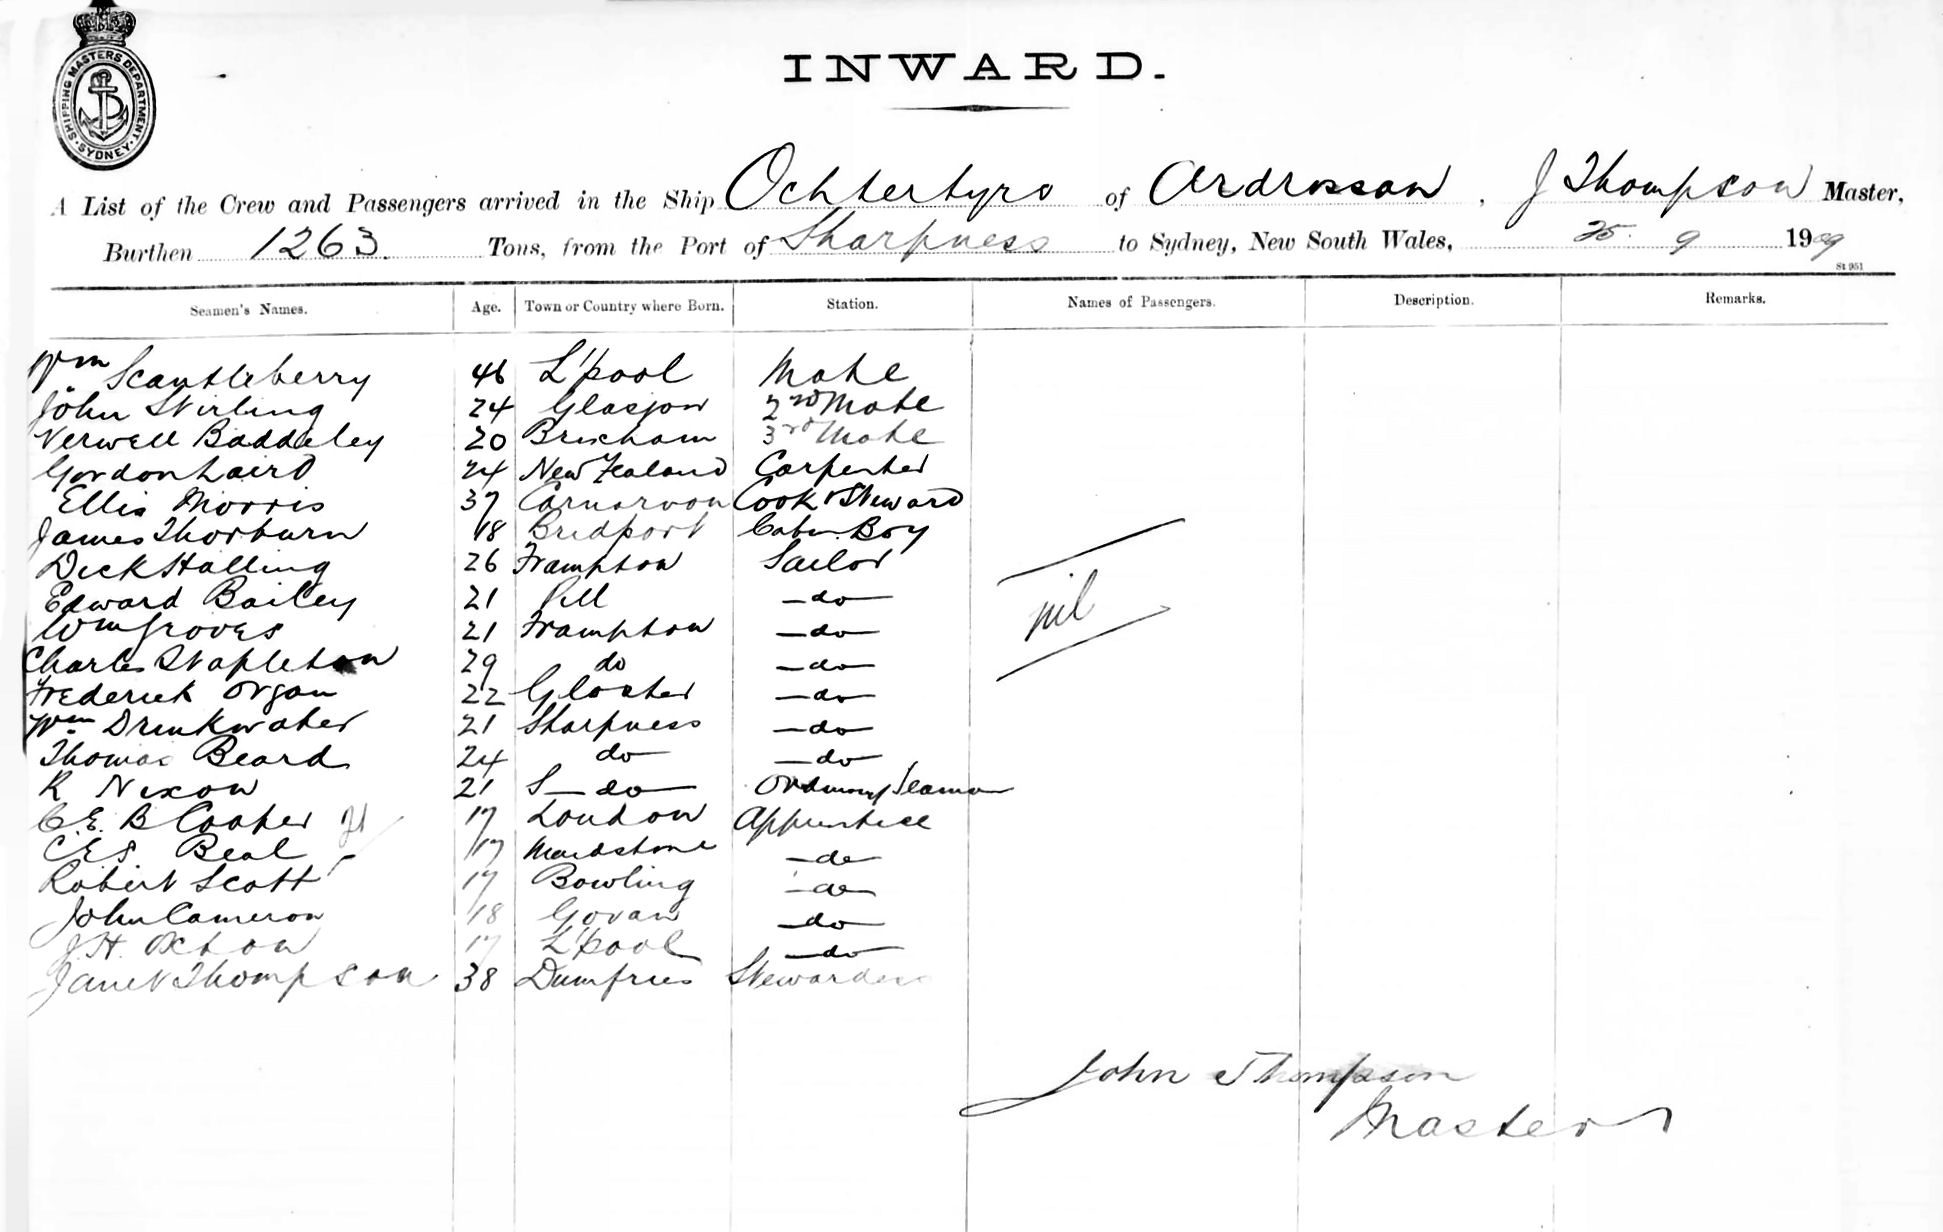 SHIPPING MASTERS DEPARTMENT. SYDNEY.
INWARD.
A List of the Crew and Passengers arrived in the Ship Ochtertyre of Ardrossan, J Thompson Master,
Burthen 1263. Tons, from the Port of Sharpness to Sydney, New South Wales, 25. 9 1909
St 951
Seamen's Names. Age. Town or Country where Born. Station. Names of Passengers. Description. Remarks.
Wm Scantleberry 46 L'pool Mate
John Stirling 24 Glasgow 2nd Mate
Verwell Baddeley 20 Brixham 3rd Mate
Gordon Laird 24 New Zealand Carpenter
Ellis Morris 37 Carnarvon Cook & Steward
James Thorburn 18 Bridport Cabin Boy
Dick Halling 26 Frampton Sailor
Edward Bailey 21 Pill - do -
nil
Wm Groves 21 Frampton - do -
Charles Stapleton 29 do - do -
Frederick Organ 22 Gloster - do -
Wm Drinkwater 21 Sharpness - do -
Thomas Beard 24 do - - do -
R Nixon 21 S - do - Ordinary Seaman
C. E. B Cooper 17 London Apprentice
C. E. S. Beal 17 Maidstone - do -
Robert Scott 17 Bowling - do -
John Cameron 18 Govan - do -
J. H. Oxton 17 L'pool - do -
Janet Thompson 38 Dumfries Stewardess
John Thompson
Master